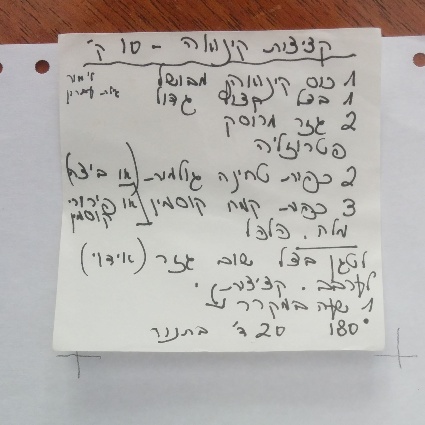 קציצות קינווה - 10 ק'
1 כוס קינווה מבושל
1 בצל קצוץ גדול
2 גזר מרוסק
פטרוזליה
2 כפות טחינה גולמית (או ביצה)
3 כפות קמח קוסמין (או פירורי קוסמין
מלח. פלפל
לטגן בצל שום גזר (אידוי)
לערבב. קציצות.
1 שעה במקרר
180° 20 ד' בתנור